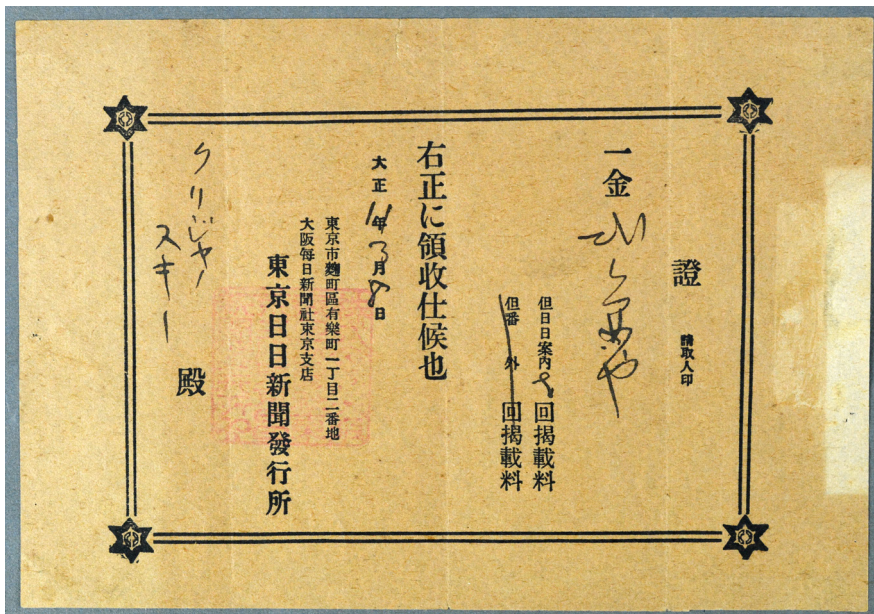 證
請取人印
一金
但日日案内 回掲載料
但番外 回掲載料
右正に領收仕候也
大正11年3月8日
東京市麴町區有樂町一丁目二番地
大阪每日新聞社東京支店
東京日日新聞發行所
クリジャノ
スキー
殿